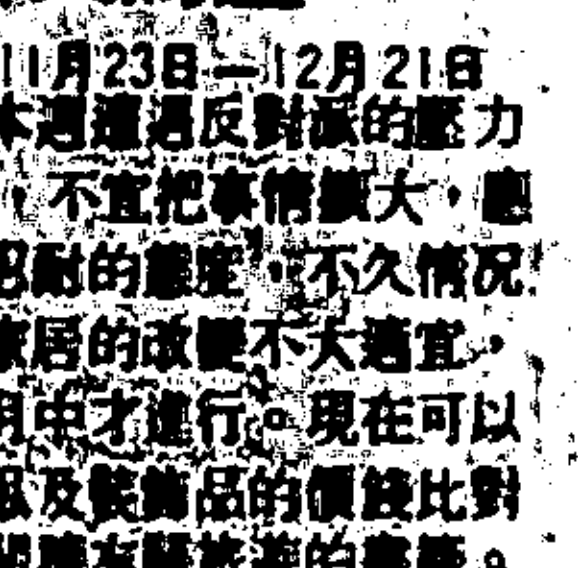 11月23日—12月21日
本週遭遇反對派的壓力
，不宜把事情擴大，應
忍耐的態度，不久情況
家居的改變不大適宜，
月中才進行。現在可以
以及裝飾品的價錢比對
的